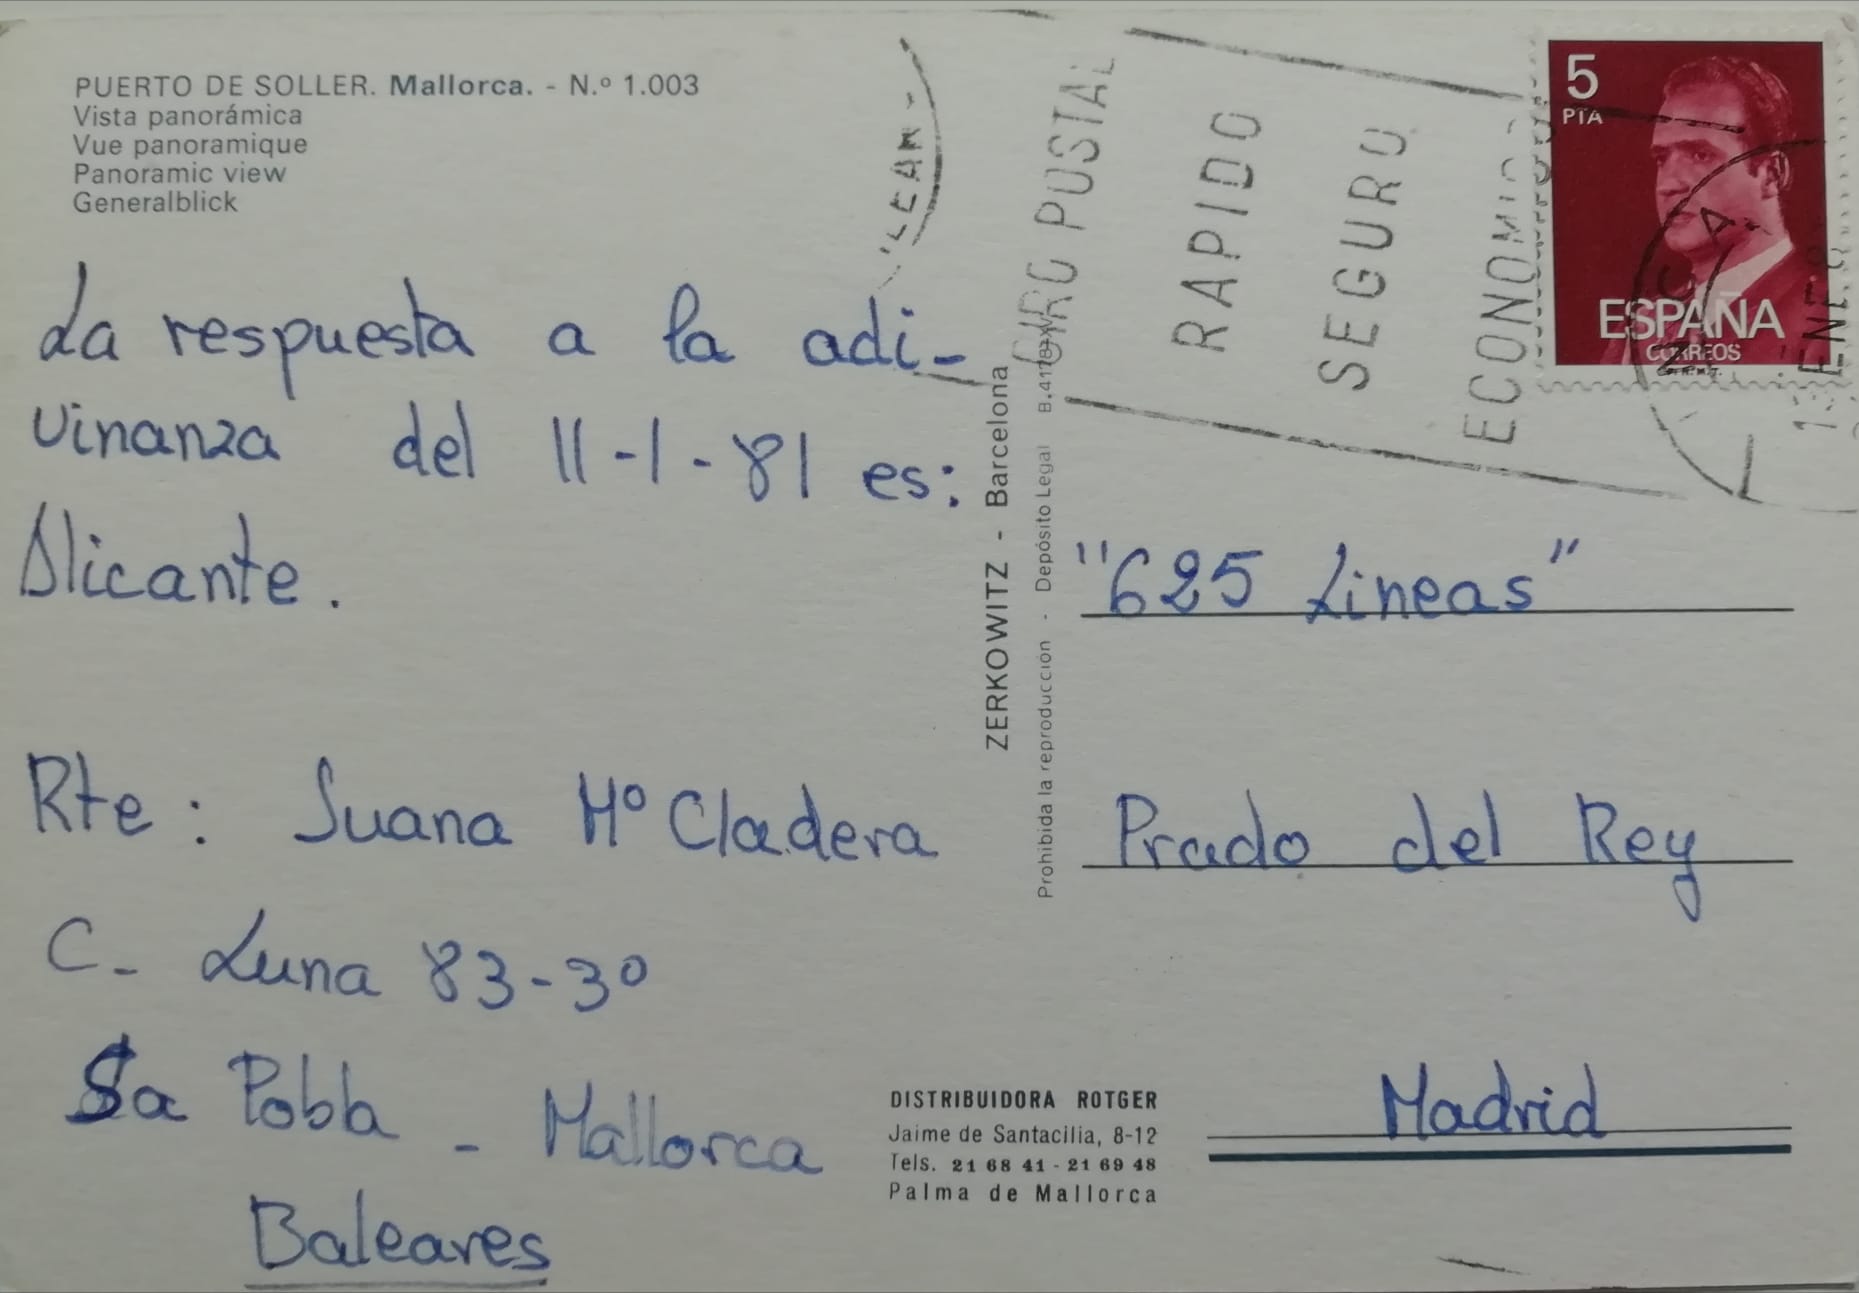 PUERTO DE SOLLER. Mallorca. - N.º 1.003
Vista panorámica
Vue panoramique
Panoramic view
Generalblick
La respuesta a la adi-
vinanza del 11-1-81 es:
Alicante.
Rte: Juana Mº Cladera
C- Luna 83-3º
Sa Pobla - Mallorca
Baleares
ZERKOWITZ - Barcelona
Prohibida la reproducción - Depósito Legal
GIRO POSTAL
RAPIDO
SEGURO
ECONOMICO
5
PTA
ESPAÑA
CORREOS
"625 Lineas"
Prado del Rey
Madrid
DISTRIBUIDORA ROTGER
Jaime de Santacilia, 8-12
Tels. 21 68 41 - 21 69 48
Palma de Mallorca